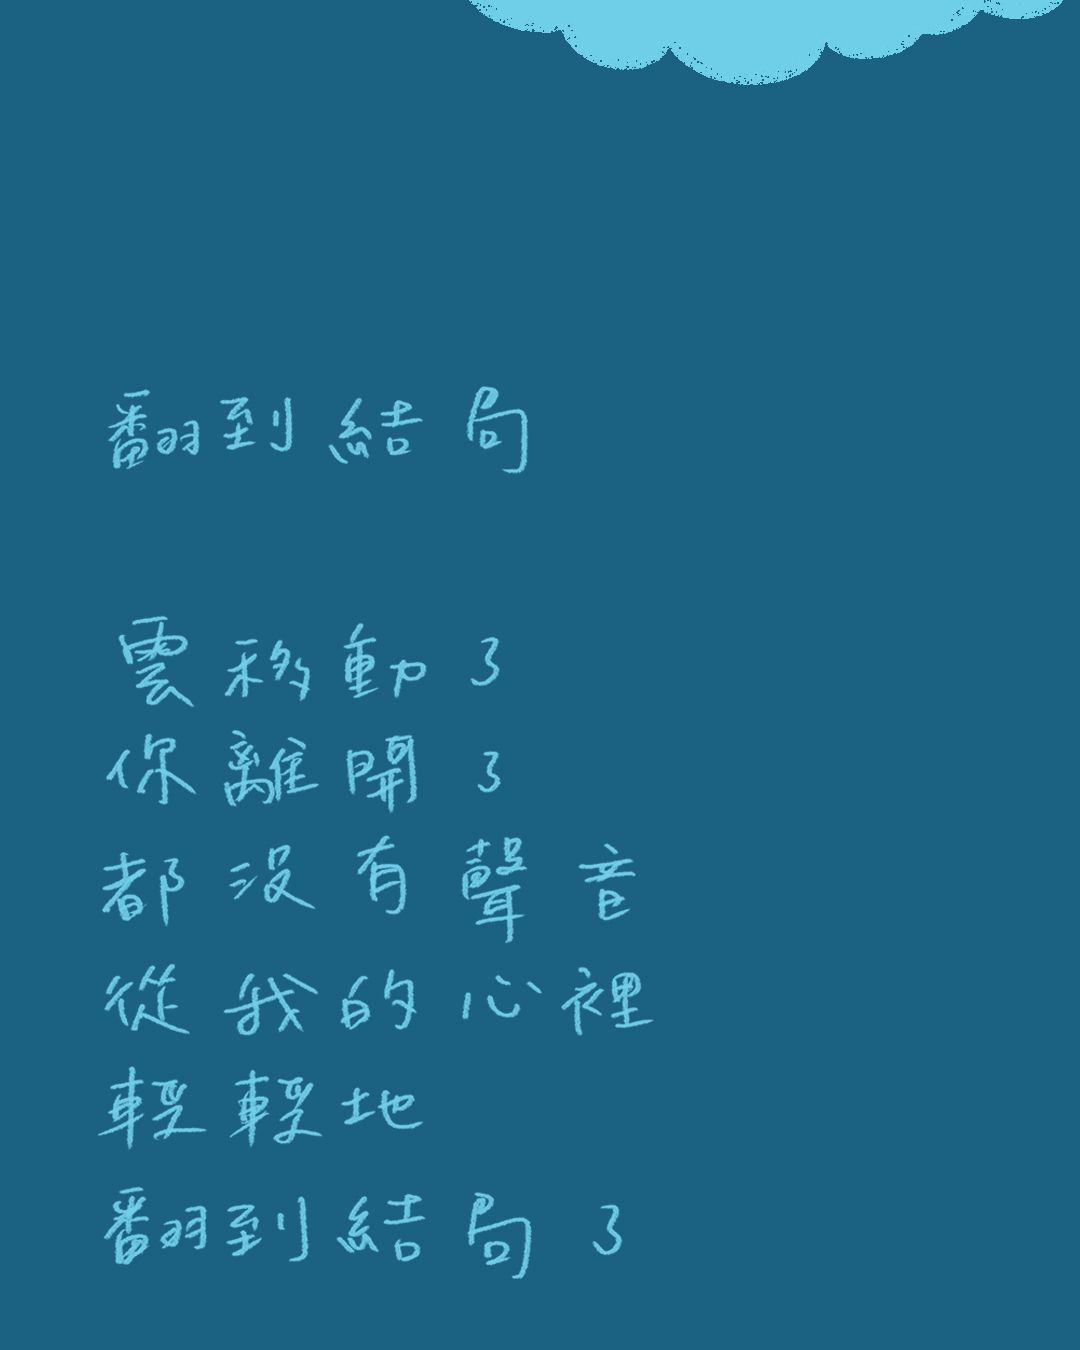 翻到結局
雲移動了
你離開了
都沒有聲音
從我的心裡
輕輕地
翻到結局了